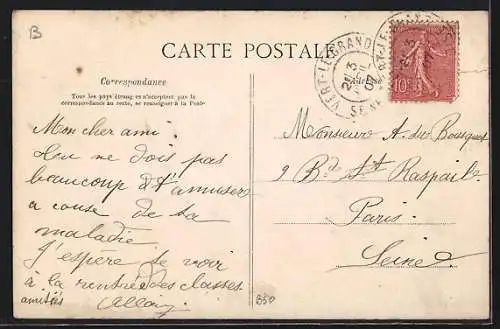 B
CARTE POSTALE
Correspondance
Tous les pays étrangers n'acceptent pas la
correspondance au recto, se renseigner à la Poste
VERT-LE-GRAND
10c
Mon cher ami
tu ne dois pas
beaucoup t'amuser
a cause de ta
maladie
J'espère te voir
à la rentrée des classes
amitiés
Monsieur A. du Bousquet
2 Bd St Raspail
Paris
Seine
B50